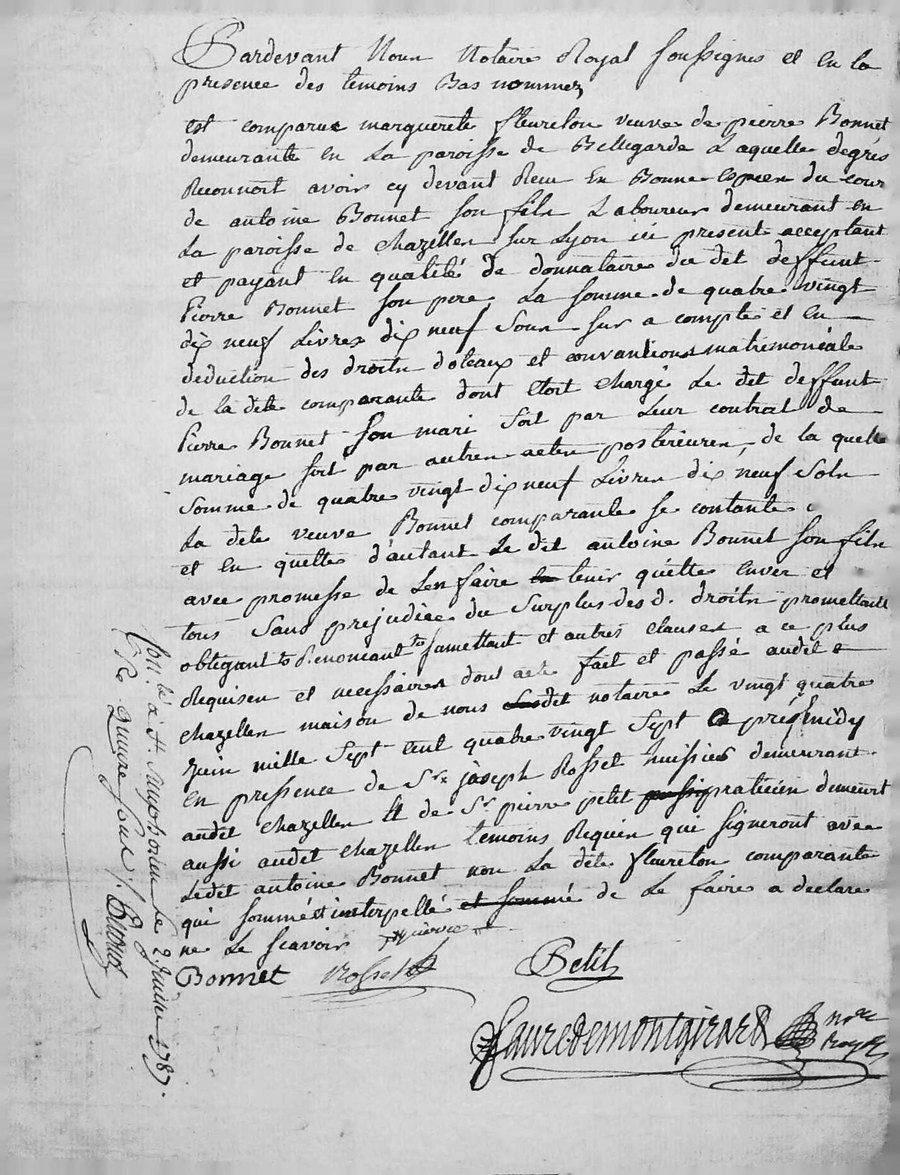 Pardevant Nous Notaire Royal soussignés et en la
presence des temoins Bas nommez
est comparue marguerete fleureton veuve de pierre Bonnet
demeurante en La paroisse de Bellegarde Laquelle degrés
Reconnoit avoir cy devant Receu En Bonne especes du cour
de antoine Bonnet son fils Laboureur demeurant en
La paroisse de chazelles sur Lyon ici present acceptant
et payant en qualité de donnataire du dit deffunt
Pierre Bonnet son pere, La somme de quatre vingt
dix neuf Livres dix neuf sous sur a compte et en
deduction des droits doteaux et convantions matremoniale
de la dete comparante dont etoit chargé Le dit deffunt
Pierre Bonnet son mari soit par Leur contrat de
mariage soit par autres actes posterieures, de la quelle
somme de quatre vingt dix neuf Livres dix neuf sols
La dete veuve Bonnet comparante se contante
et en quette d'autant Le dit antoine Bonnet son fils
avec promesse de L'en faire tenir quette enver et
tous sans prejudice du surplus des d. droits promettants
obligeant ts Renoncant ts sumettant et autres clauses a ce plus
Requises et necessaires dont acte fait et passé audit
chazelles maison de nous dit notaire Le vingt quatre
juin mille sept cent quatre vingt sept après midy
en pressence de Sr joseph Rosset huissier demeurant
audit chazelles et de Sr pierre petit praticien demeurt
aussi audit chazelles temoins Requis qui signeront avec
Ledit antoine Bonnet non La dete fleureton comparante
qui sommé et interpellé et sommé de Le faire a declaré
ne Le scavoir
Bonnet Rosset Petit
fauredemontgirard nore Royal
Con.lé à St. Simphorien le 2 juillet 1787.